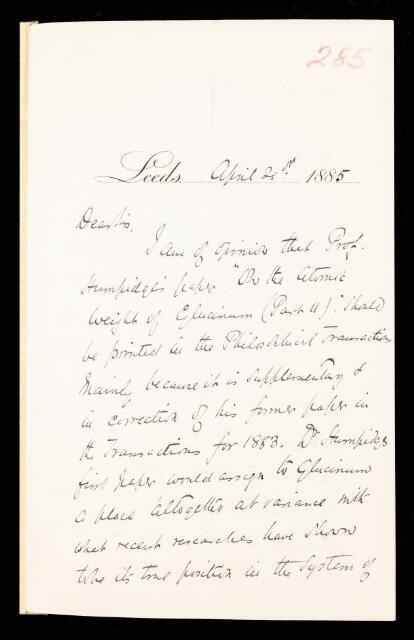 285
Leeds. April 21st 1885
Dear Sir,
I am of opinion that Prof.
Humpidge's paper "On the Atomic
Weight of Glucinum (Part II)" should
be printed in the Philosophical Transactions
mainly because it is supplementary &
in correction of his former paper in
the Transactions for 1883. Dr Humpidge's
first paper would assign to Glucinum
a place altogether at variance with
what recent researches have shown
to be its true position in the System of